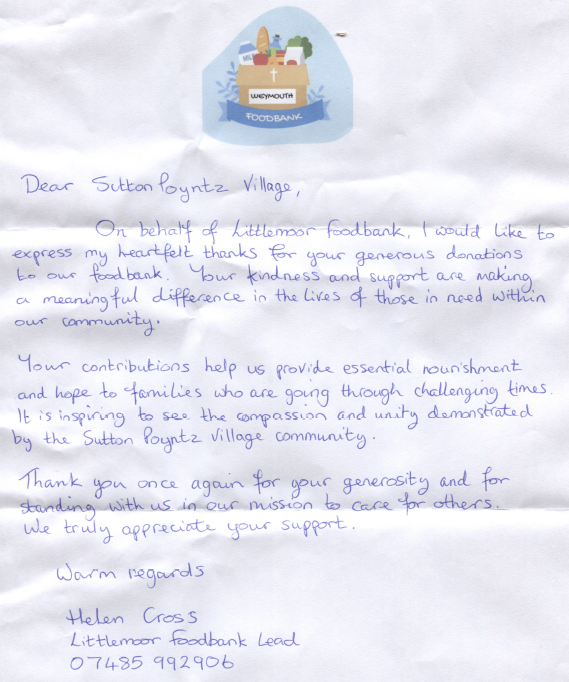 MILK
WEYMOUTH
FOODBANK
Dear Sutton Poyntz Village,
On behalf of Littlemoor Foodbank, I would like to
express my heartfelt thanks for your generous donations
to our foodbank. Your kindness and support are making
a meaningful difference in the lives of those in need within
our community.
Your contributions help us provide essential nourishment
and hope to families who are going through challenging times.
It is inspiring to see the compassion and unity demonstrated
by the Sutton Poyntz Village community.
Thank you once again for your generosity and for
standing with us in our mission to care for others.
We truly appreciate your support.
Warm regards
Helen Cross
Littlemoor Foodbank Lead
07485 992906